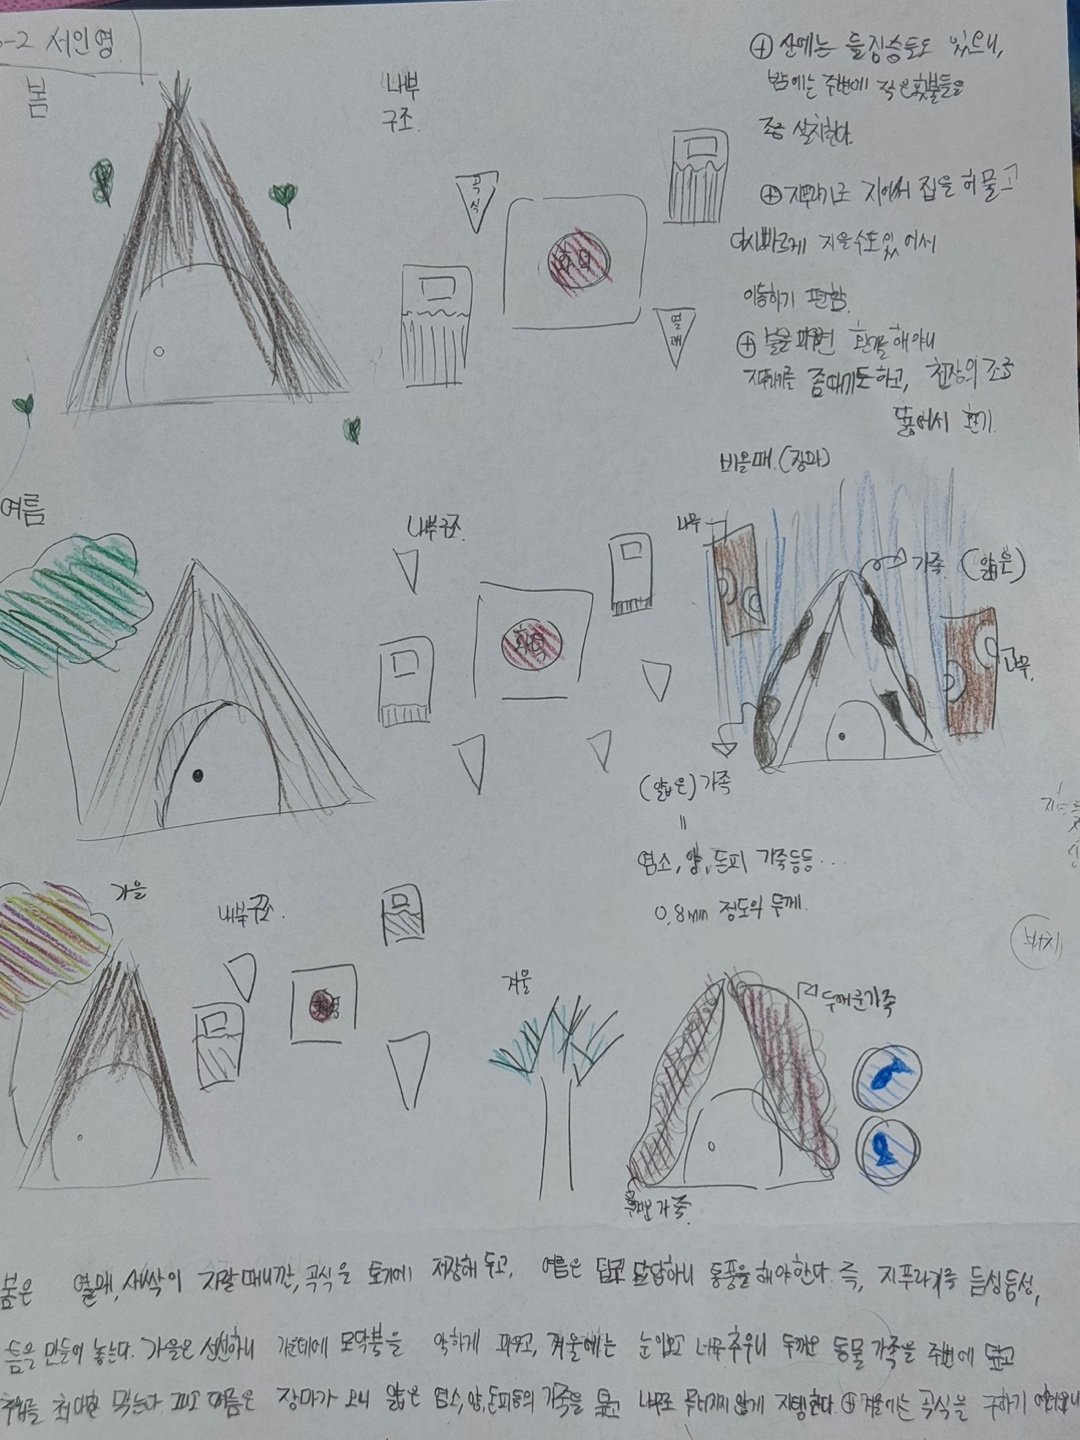 서인영
봄
내부
구조.
곡식
화덕
열매
⊕ 산에는 들짐승들도 있으니,
밤에는 주변에 작은 횃불들을
조금 설치한다.
⊕ 지푸라기로 지어서 집을 허물고
다시 빠르게 지을수도 있어서
이동하기 편함.
⊕ 불을 피우면 환기를 해야하니
지푸라기를 좀 떼기도 하고, 천장의 조금
뚫어서 환기.
여름
내부구조.
화덕
비올때.(장마)
나무
가죽 (얇은)
나무.
(얇은)가죽
=
염소, 양, 돈피 가죽등등...
0.8mm 정도의 두께.
가을
내부구조.
배치
겨울
두꺼운가죽
두꺼운가죽.
봄은 열매, 새싹이 자랄 때니깐, 곡식을 토기에 저장해 두고, 여름은 덥고 답답하니 통풍을 해야한다. 즉, 지푸라기를 듬성듬성,
틈을 만들어 놓는다. 가을은 선선하니 가운데에 모닥불을 약하게 피우고, 겨울에는 눈이오고 너무 추우니 두꺼운 동물 가죽을 주변에 덮고
추위를 최대한 막는다 그리고 여름은 장마가 오니 얇은 염소, 양, 돈피등의 가죽을 덮고 나무로 무너지지 않게 지탱한다. ⊕ 겨울에는 곡식을 구하기